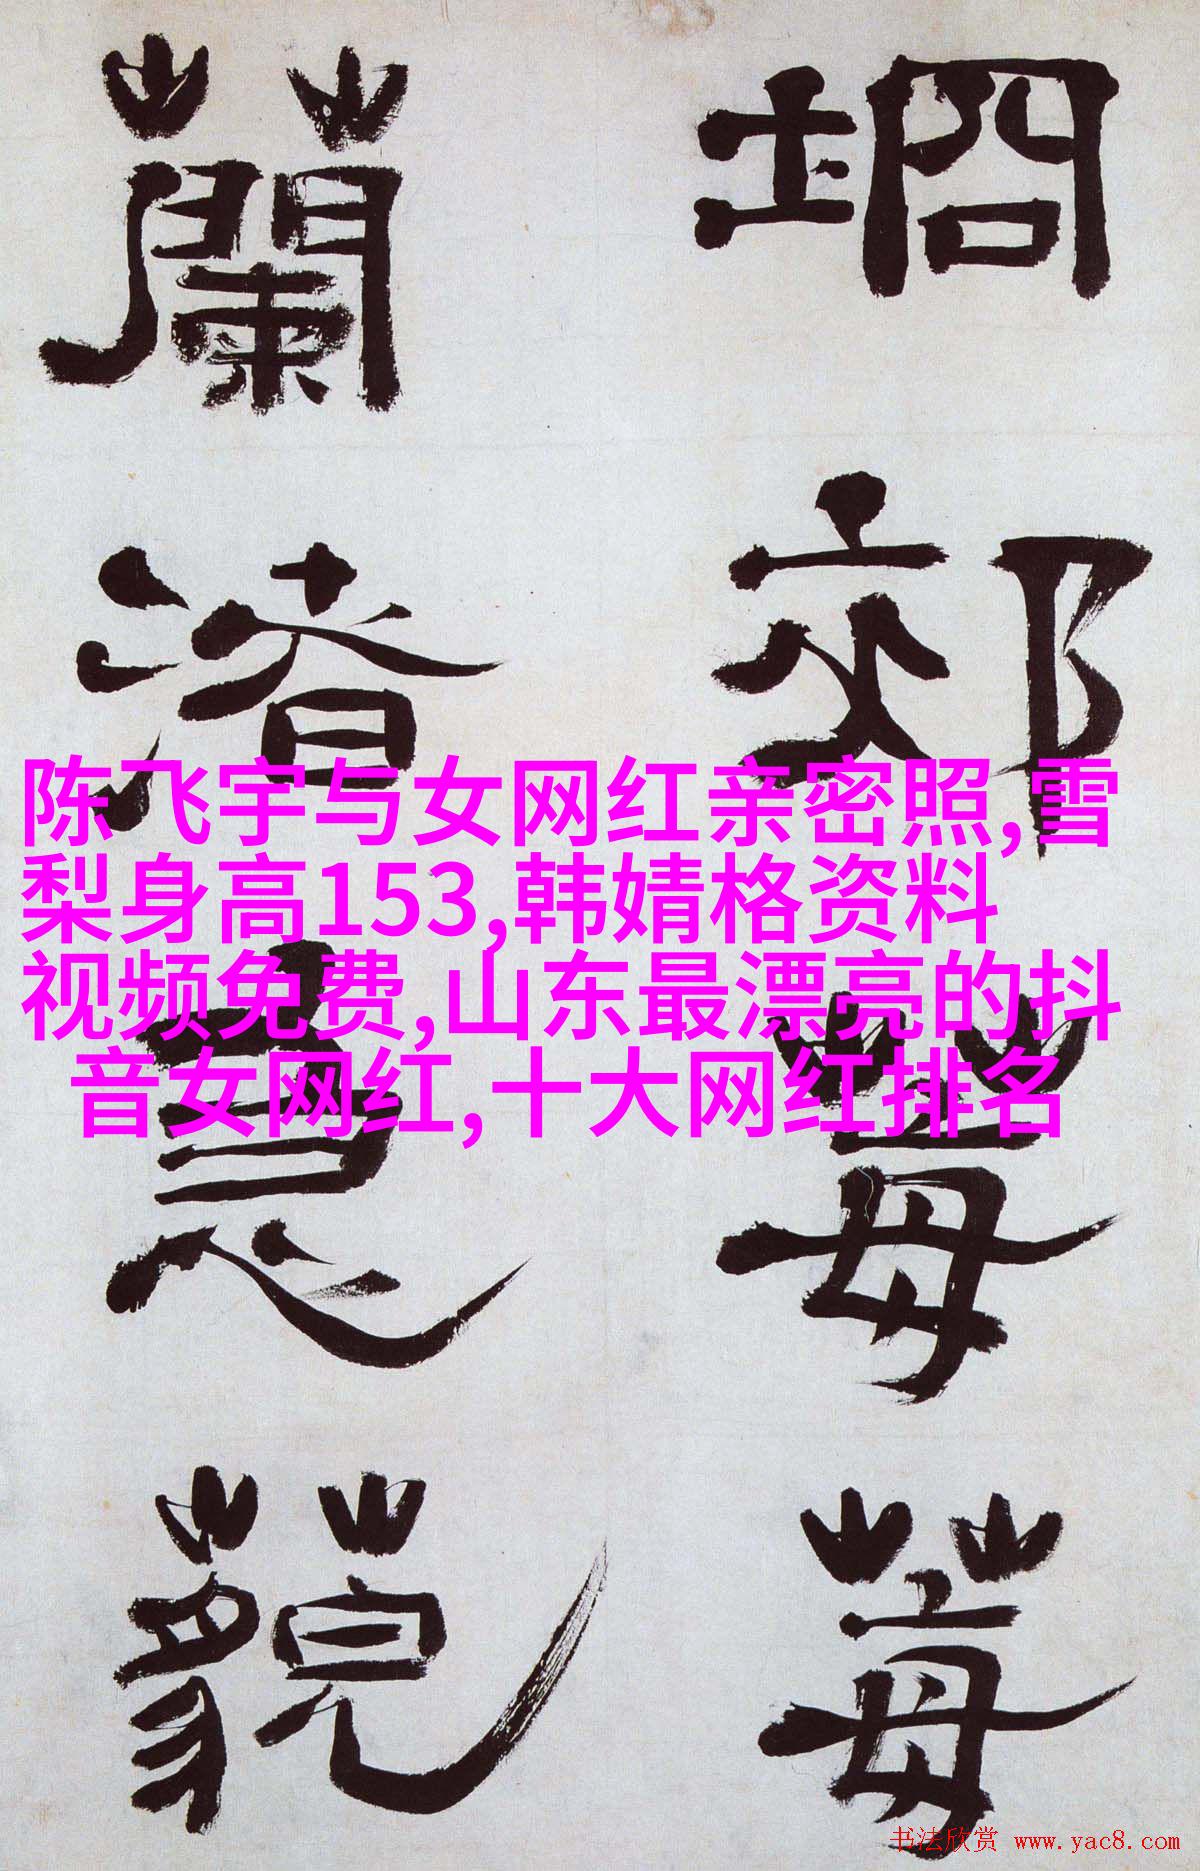 坰郊莓莓
蘭渚藐
陈飞宇与女网红亲密照,雪
梨身高153,韩婧格资料
视频免费,山东最漂亮的抖
音女网红,十大网红排名
书法欣赏 www.yac8.com